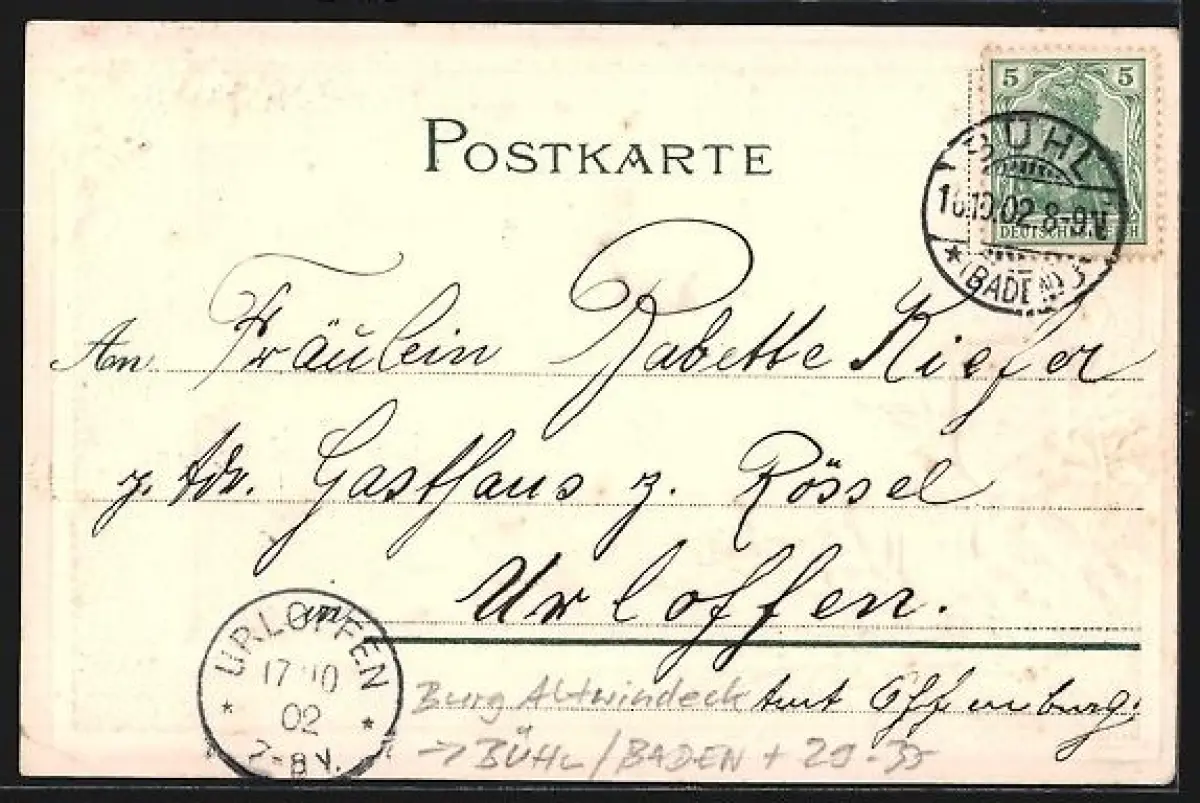 POSTKARTE
5 5
DEUTSCHES REICH
BÜHL
16.10.02.8-9V
* (BADEN)
An Fräulein Babette Kiefer
z. Adr. Gasthaus z. Rössel
in Urloffen.
Amt Offenburg.
URLOFFEN
17 10
02
7-8V.
Burg Altwindeck
→ BÜHL/BADEN + 29.-35